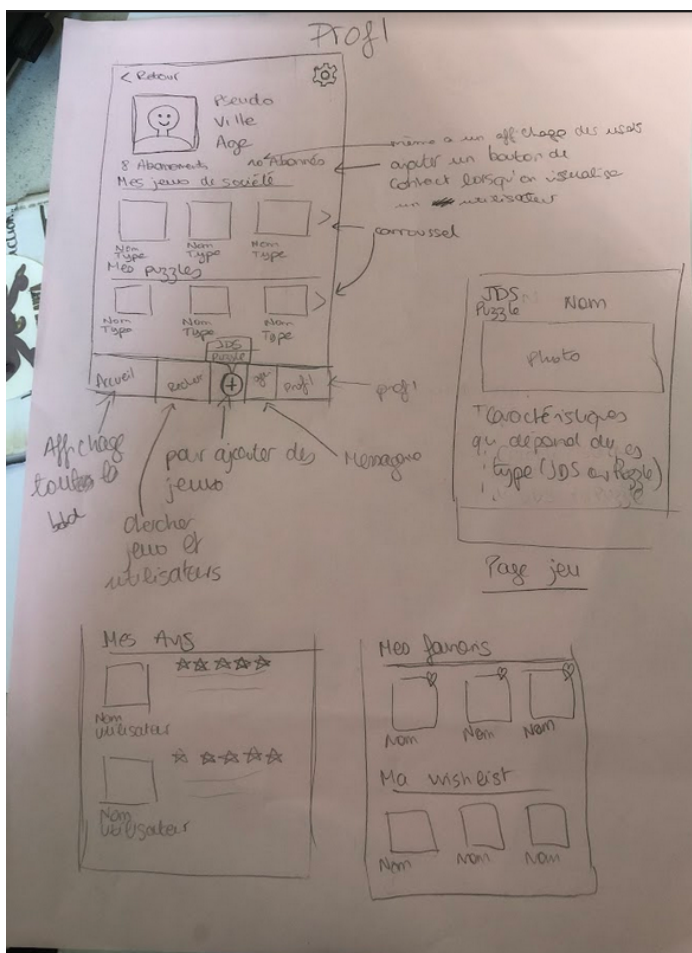 Profl
< Retour
Pseudo
Ville
Age
8 Abonnements
Abonnés
Mes jeux de société
Nom Nom Nom
Type Type Type
Mes puzzles
Nom Nom Nom
Type Type Type
JDS
puzzle
Accueil
+
profil
même a un affichage des
ajouter un bouton de
contact lorsqu'on visualise
un utilisateur
carroussel
profl
Affichage
toutes la
bdd
chercher
jeux et
utilisateurs
pour ajouter des
jeux
Messagerie
JDS
Puzzle
Nom
photo
Caractéristiques
qui dépend du
type (JDS ou Puzzle)
Page jeu
Mes Avis
Nom
utilisateur
Nom
utilisateur
Mes favoris
Nom Nom Nom
Ma wishlist
Nom Nom Nom